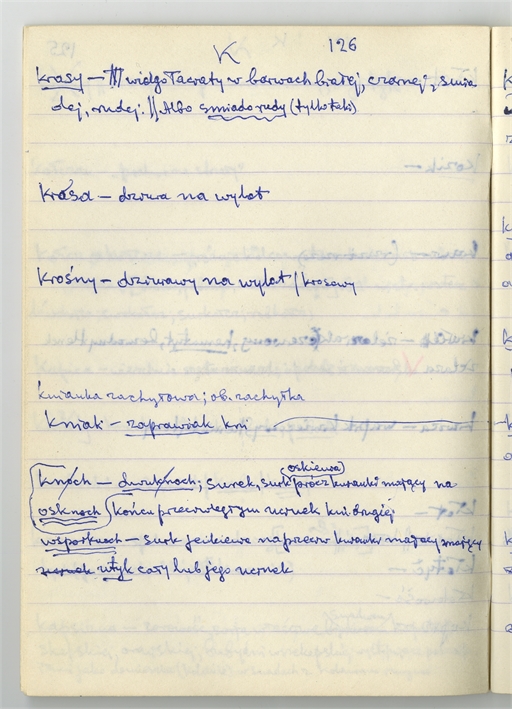 K 126
krasy — widgo łacraty w barwach białej, czarnej, smia
dej, rudej. || Albo smiado rudy (tylko taki)
krósa — dziura na wylot
krośny — dziurawy na wylot / krosowy
kmianka zachyłkowa; ob. zachyłka
kmiak — zaprawiak kmi
knoch — dwuknoch; surek, surk (oskiewa) prócz kuranki mający na
osknoch końcu przeciwległym ucinek kni drugiej
wsporkuoch — surk jeikiewe naprzeciw kuranki mający
ucinek wtyk cały lub jego ucinek